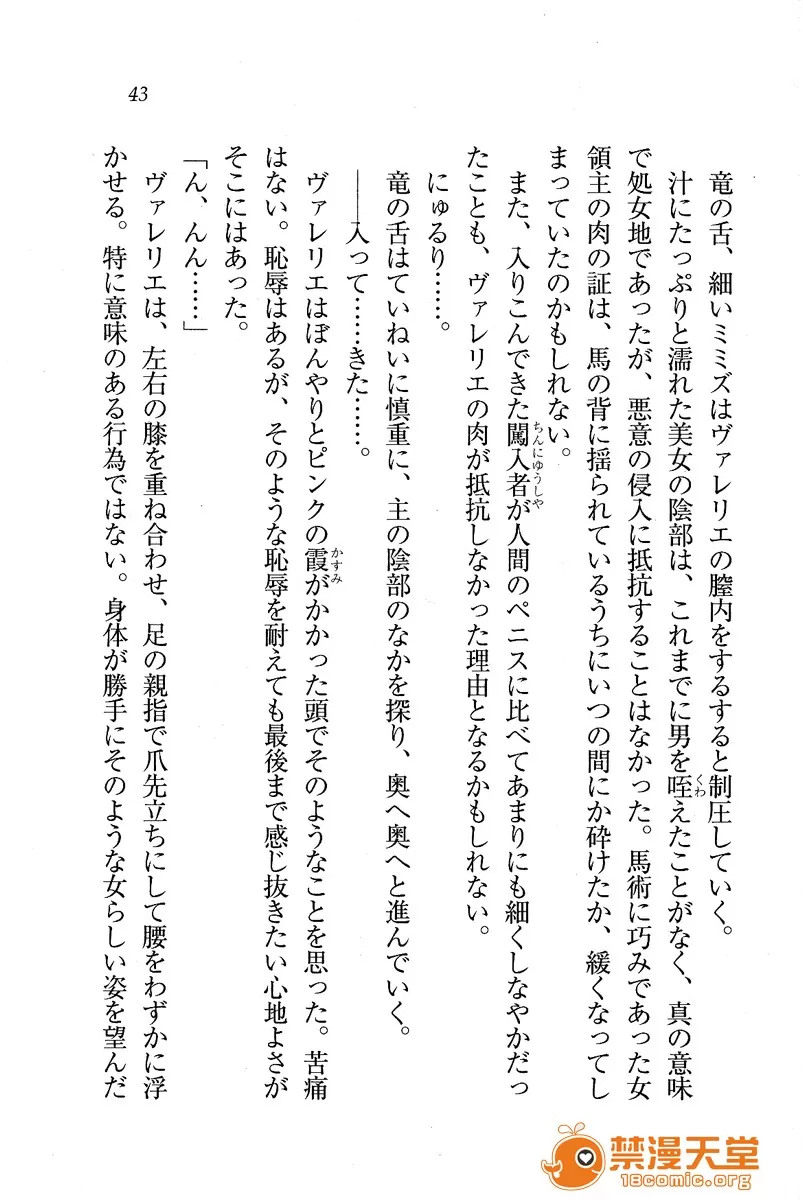 43
竜の舌、細いミミズはヴァレリエの膣内をするすると制圧していく。
汁にたっぷりと濡れた美女の陰部は、これまでに男を咥えたことがなく、真の意味
で処女地であったが、悪意の侵入に抵抗することはなかった。馬術に巧みであった女
領主の肉の証は、馬の背に揺られているうちにいつの間にか砕けたか、緩くなってし
まっていたのかもしれない。
また、入りこんできた闖入者が人間のペニスに比べてあまりにも細くしなやかだっ
たことも、ヴァレリエの肉が抵抗しなかった理由となるかもしれない。
にゅるり……。
竜の舌はていねいに慎重に、主の陰部のなかを探り、奥へ奥へと進んでいく。
――入って……きた……。
ヴァレリエはぼんやりとピンクの霞がかかった頭でそのようなことを思った。苦痛
はない。恥辱はあるが、そのような恥辱を耐えても最後まで感じ抜きたい心地よさが
そこにはあった。
「ん、んん……」
ヴァレリエは、左右の膝を重ね合わせ、足の親指で爪先立ちにして腰をわずかに浮
かせる。特に意味のある行為ではない。身体が勝手にそのような女らしい姿を望んだ
くわ
ちんにゆうしや
かすみ
禁漫天堂
18comic.org